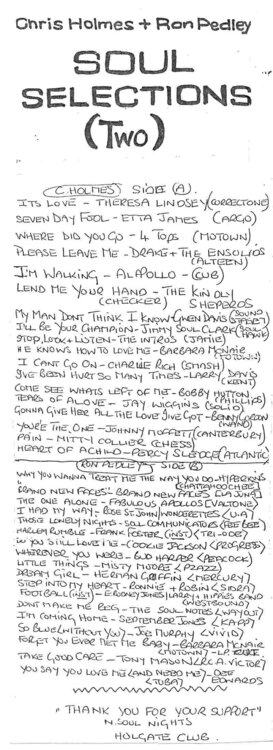 Chris Holmes + Ron Pedley
SOUL
SELECTIONS
(TWO)
(C. HOLMES) SIDE (A).
ITS LOVE - THERESA LINDSEY (CORRECTONE)
SEVEN DAY FOOL - ETTA JAMES (ARGO)
WHERE DID YOU GO - 4 TOPS (MOTOWN)
PLEASE LEAVE ME - DRAKE + THE ENSOLIDS
(ALTEEN)
I'M WALKING - AL APOLLO - (CUB)
LEND ME YOUR HAND - THE KINDLY
(CHECKER) SHEPERDS
MY MAN DONT THINK I KNOW GWEN DAVIS (SOUND
I'LL BE YOUR CHAMPION - JIMMY SOUL CLARK (SOUL
HAWK)
STOP, LOOK + LISTEN - THE INTROS (JAMIE)
HE KNOWS HOW TO LOVE ME - BARBARA McNAIR
(MOTOWN)
I CANT GO ON - CHARLIE RICH (SMASH)
I'VE BEEN HURT SO MANY TIMES - LARRY DAVIS
(KENT)
COME SEE WHATS LEFT OF ME - BOBBY HUTTON
(PHILLIPS)
TEARS OF A LOVE - JAY WIGGINS (SOLID)
GONNA GIVE HER ALL THE LOVE I'VE GOT - BENNY GORDON
(WAND)
YOU'RE THE ONE - JOHNNY MOFFETT (CANTERBURY)
PAIN - MITTY COLLIER (CHESS)
HEART OF A CHILD - PERCY SLEDGE (ATLANTIC)
(RON PEDLEY) SIDE (B)
WHY YOU WANNA TREAT ME THE WAY YOU DO - HYPERIONS
(CHATTAHOOCHEE)
BRAND NEW FACES - BRAND NEW FACES
THE ONE ALONE - FABULOUS APOLLOS (VALTONE)
I HAD MY WAY - ROSE ST JOHN/WONDERETTES (U.A)
THOSE LONELY NIGHTS - SOUL COMMUNICATORS (FEE BEE)
HARLEM RUMBLE - FRANK FOSTER (INST) - (TRI-ODE)
DO YOU STILL LOVE ME - COOKIE JACKSON (PROGRESS)
WHEREVER YOU WERE - BUD HARPER (PEACOCK)
LITTLE THINGS - MISTY MOORE (PZAZZ)
DREAM GIRL - HERMAN GRIFFIN (MERCURY)
STEP INTO MY HEART - RONNIE + ROBIN (SIDRA)
FOOTBALL (INST) - E. RODNEY JONES/LARRY + HIPPIES BAND
(WESTBOUND)
DONT MAKE ME BEG - THE SOUL NOTES (WAY OUT)
I'M COMING HOME - SEPTEMBER JONES (KAPP)
SO BLUE (WITHOUT YOU) - JOE MURPHY (VIVID)
FORGET YOU EVER MET ME BABY - BARBARA McNAIR
(MOTOWN)
TAKE GOOD CARE - TONY MASON (R.C.A. VICTOR)
YOU SAY YOU LOVE ME (AND NEED ME) - DEE
(TUBA) EDWARDS
"THANK YOU FOR YOUR SUPPORT"
N. SOUL NIGHTS
HOLGATE CLUB.